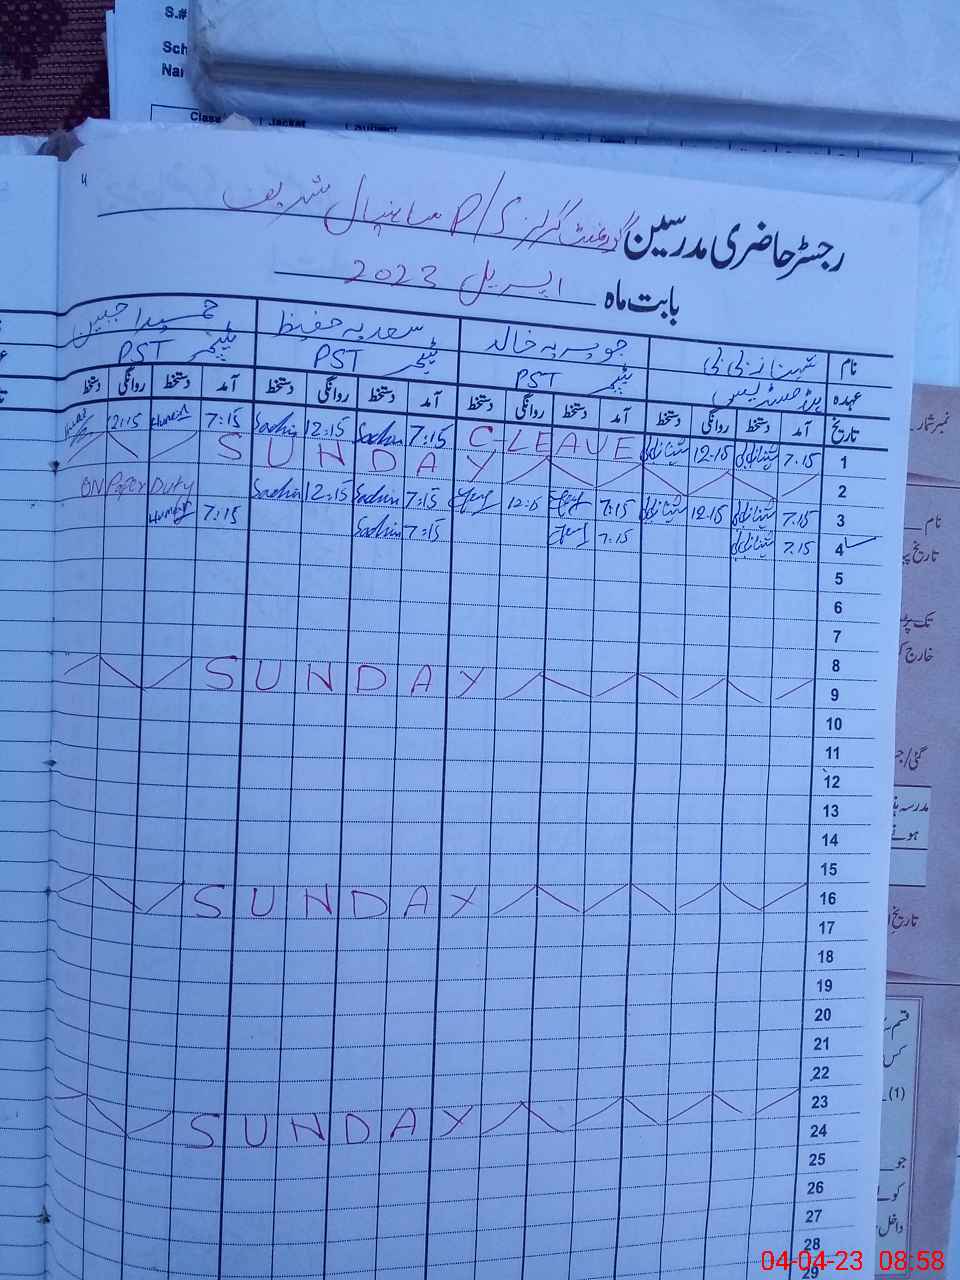 S.#
Sch
Nar
Class
Jacket
Subject
رجسٹر حاضری مدرسین گورنمنٹ گرلز P/S ساہنپال شریف
بابت ماہ اپریل 2023
نام شہناز بی بی جویریہ خالد سعدیہ حفیظ حمیرا جبین
عہدہ ہیڈ مسٹریس PST ٹیچر PST ٹیچر PST ٹیچر
تاریخ آمد دستخط روانگی دستخط آمد دستخط روانگی دستخط آمد دستخط روانگی دستخط آمد دستخط روانگی دستخط
1 7.15 شہناز بی بی 12.15 شہناز بی بی C-LEAVE 7:15 Sadia 12:15 Sadia 7:15 Humera 12:15
2 SUNDAY
3 7.15 شہناز بی بی 12.15 شہناز بی بی 7:15 12:15 7:15 Sadia 12:15 Sadia ON Paper Duty
4 7.15 شہناز بی بی 7.15 7:15 Sadia 7:15 Humera
5
6
7
8
9 SUNDAY
10
11
12
13
14
15
16 SUNDAY
17
18
19
20
21
22
23
24 SUNDAY
25
26
27
28
29
نمبر شمار
نام
تک
خارج
مدرسہ
تاریخ
(1)
جو
داخل
04-04-23 08:58